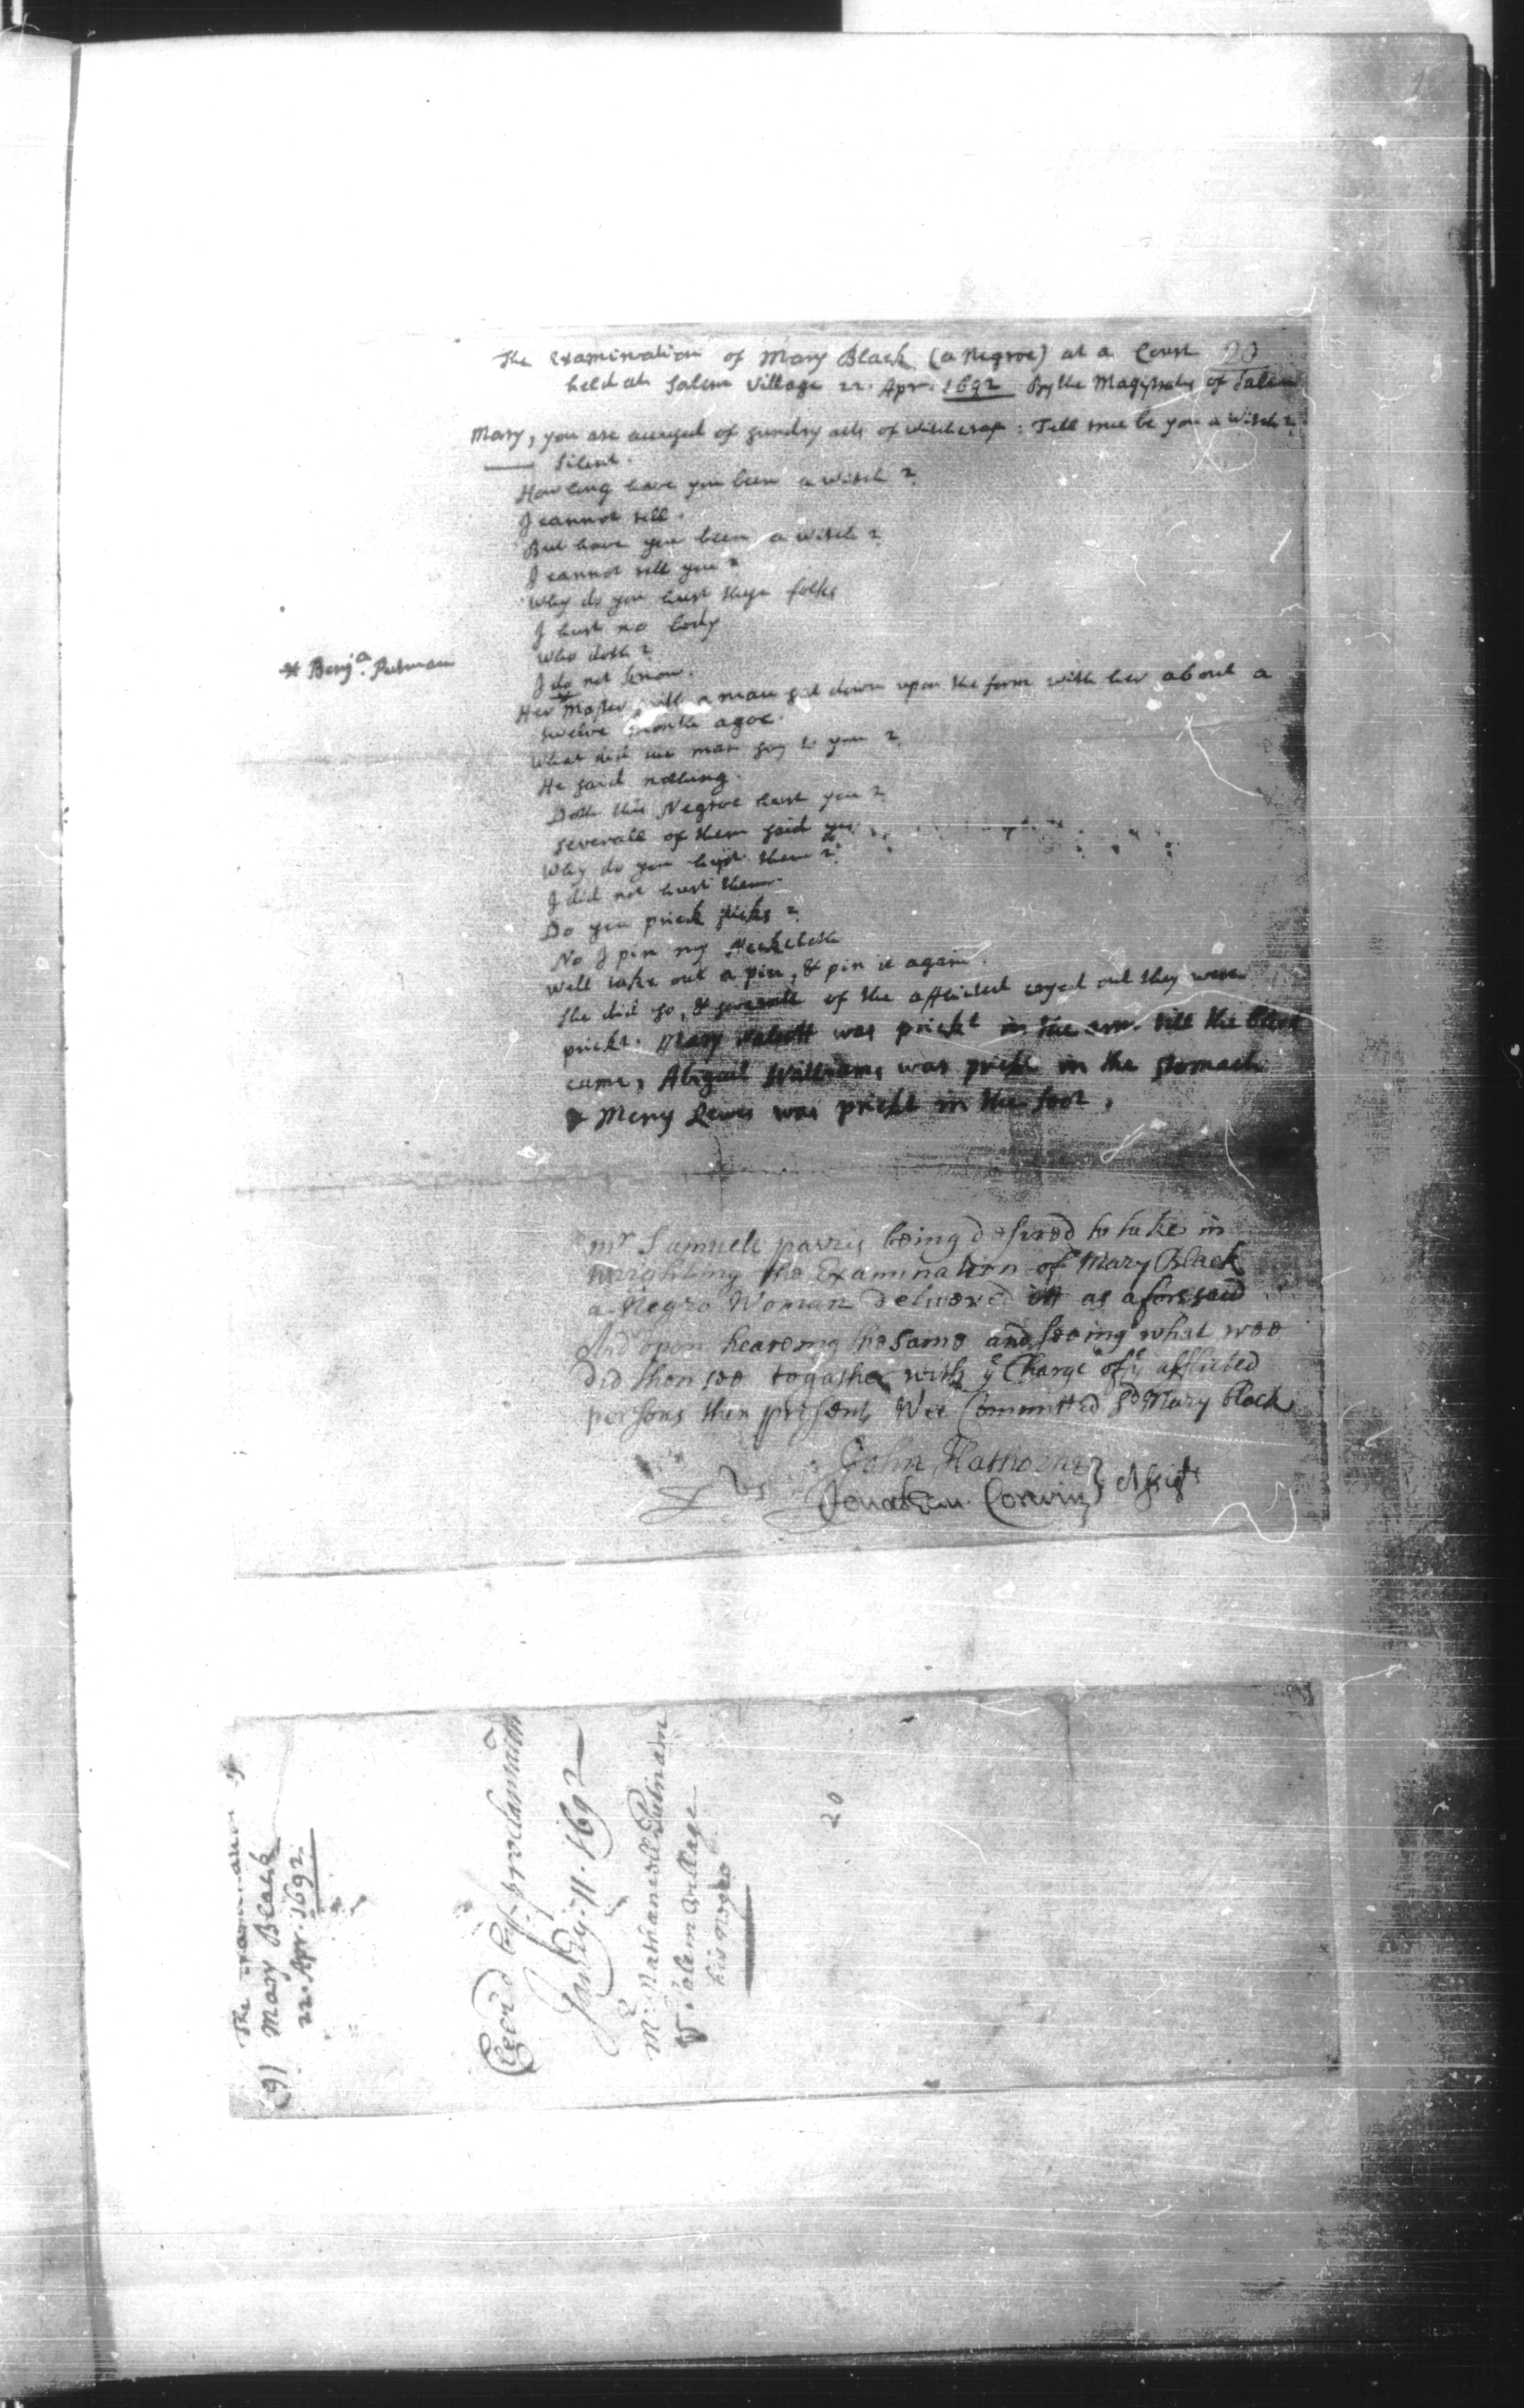 The Examination of Mary Black (a Negroe) at a Court 20
held at Salem Village 22. Apr. 1692 By the Magistrates of Salem
Mary, you are accused of sundry acts of witchcraft: Tell me be you a Witch?
—— Silent.
How long have you been a witch?
I cannot tell.
But have you been a witch?
I cannot tell you
Why do you hurt these folks
I hurt no body
Who doth?
I do not know.
* Benjᵃ. Putman
Her * Master saith a man sat down upon the form with her about a
twelve month agoe.
What did the man say to you?
He said nothing.
Doth this Negroe hurt you?
severall of them said yes.
Why do you hurt them?
I did not hurt them.
Do you prick sticks?
No I pin my Neckcloth
Well take out a pin, & pin it again.
She did so, & severall of the afflicted cryed out they were
prickt. Mary Walcott was prickt in the arm till the blood
came, Abigail Williams was prickt in the stomach
& Mercy Lewes was prickt in the foot.
mʳ Samuell parris being desired to take in
wrighting the Examination of Mary Black
a Negro Woman delivered itt as aforesaid
And upon heareing the same and seeing what wee
did then see togather with yᵉ Charge of yᵉ afflicted
persons then present Wee Committed sᵈ Mary Black
John Hathorne
us Jonathan. Corwin } Assists
The examination of
(9) Mary Black
22. Apr. 1692
Cleerd by proclamation
Janʳy. 11. 1692
Mʳ. Nathaniell Putnam
of Salem village
his negro
20